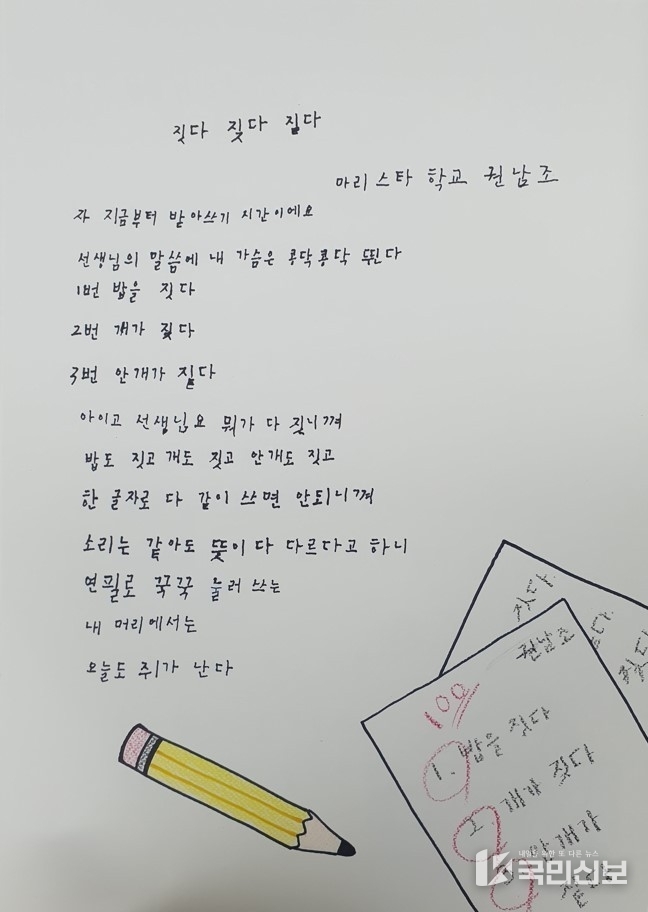 짓다 짖다 짙다
마리스타 학교 권남조
자 지금부터 받아쓰기 시간이에요
선생님의 말씀에 내 가슴은 콩닥콩닥 뛴다
1번 밥을 짓다
2번 개가 짖다
3번 안개가 짙다
아이고 선생님요 뭐가 다 짓니껴
밥도 짓고 개도 짓고 안개도 짓고
한 글자로 다 같이 쓰면 안되니껴
소리는 같아도 뜻이 다 다르다고 하니
연필로 꾹꾹 눌러 쓰는
내 머리에서는
오늘도 쥐가 난다
짓다
권남조
100
1. 밥을 짓다
2. 개가 짖다
안개가
국민신보